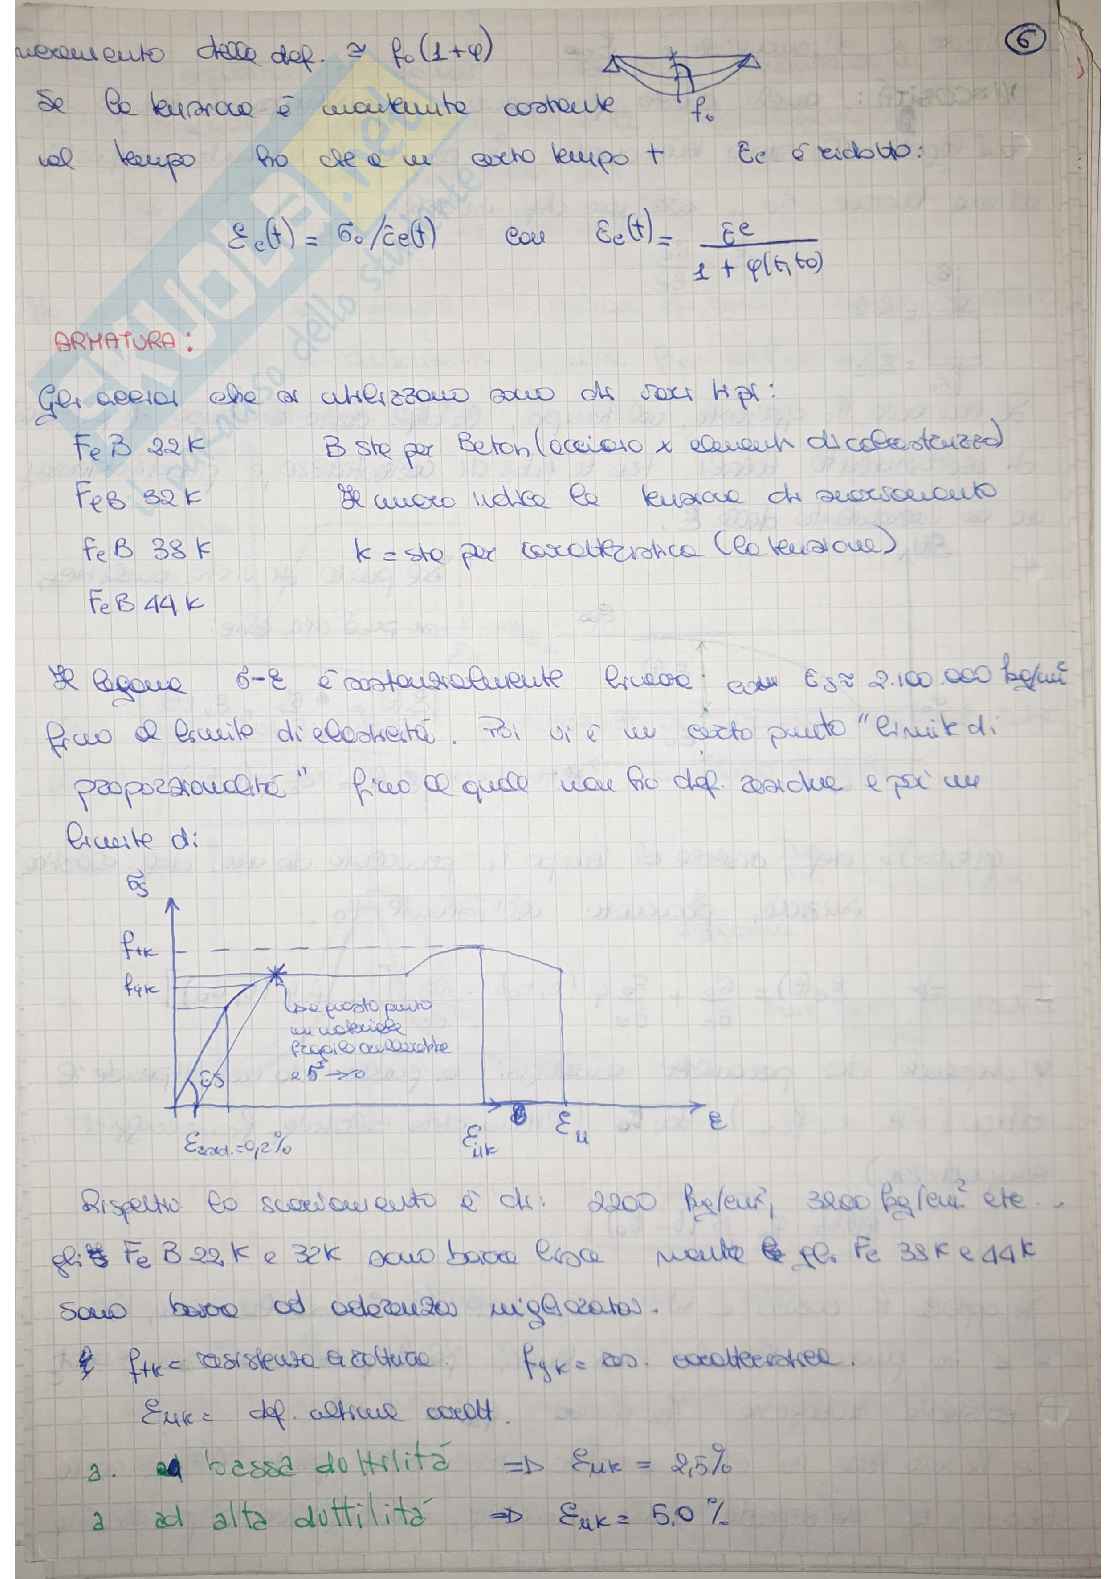 6
della def. ≃ f₀(1+φ)
Se la tensione è mantenuta costante
f₀
nel tempo ho che a un certo tempo t Ec è ridotto:
εc(t) = σ₀/Ec(t) con Ec(t) = Ec / 1 + φ(t,t₀)
ARMATURA:
Gli acciai che si utilizzano sono di vari tipi:
FeB 22K B sta per Beton (acciaio x elementi di calcestruzzo)
FeB 32K Il numero indica la tensione di snervamento
FeB 38K K = sta per caratteristica (la tensione)
FeB 44K
Il legame σ-ε è sostanzialmente lineare con Es≃ 2.100.000 kg/cm²
fino al limite di elasticità. Poi vi è un certo punto "limite di
proporzionalità" fino al quale non ho def. residue e poi un
limite di
σs
ftk
fyk
se a questo punto
un materiale
fragile
→0
Es
εresid.=0,2%
εuk
εu
ε
Rispetto lo snervamento è di: 2200 kg/cm², 3200 kg/cm² etc..
gli FeB 22K e 32K sono barre lisce mentre gli Fe 38K e 44K
sono barre ad aderenza migliorata.
ftk = resistenza a rottura. fyk = res. caratteristica.
εuk = def. ultima caratt.
a. ad bassa duttilità ⇒ εuk = 2,5%
a ad alta duttilità ⇒ εuk = 5,0 %
SKUOLA.net